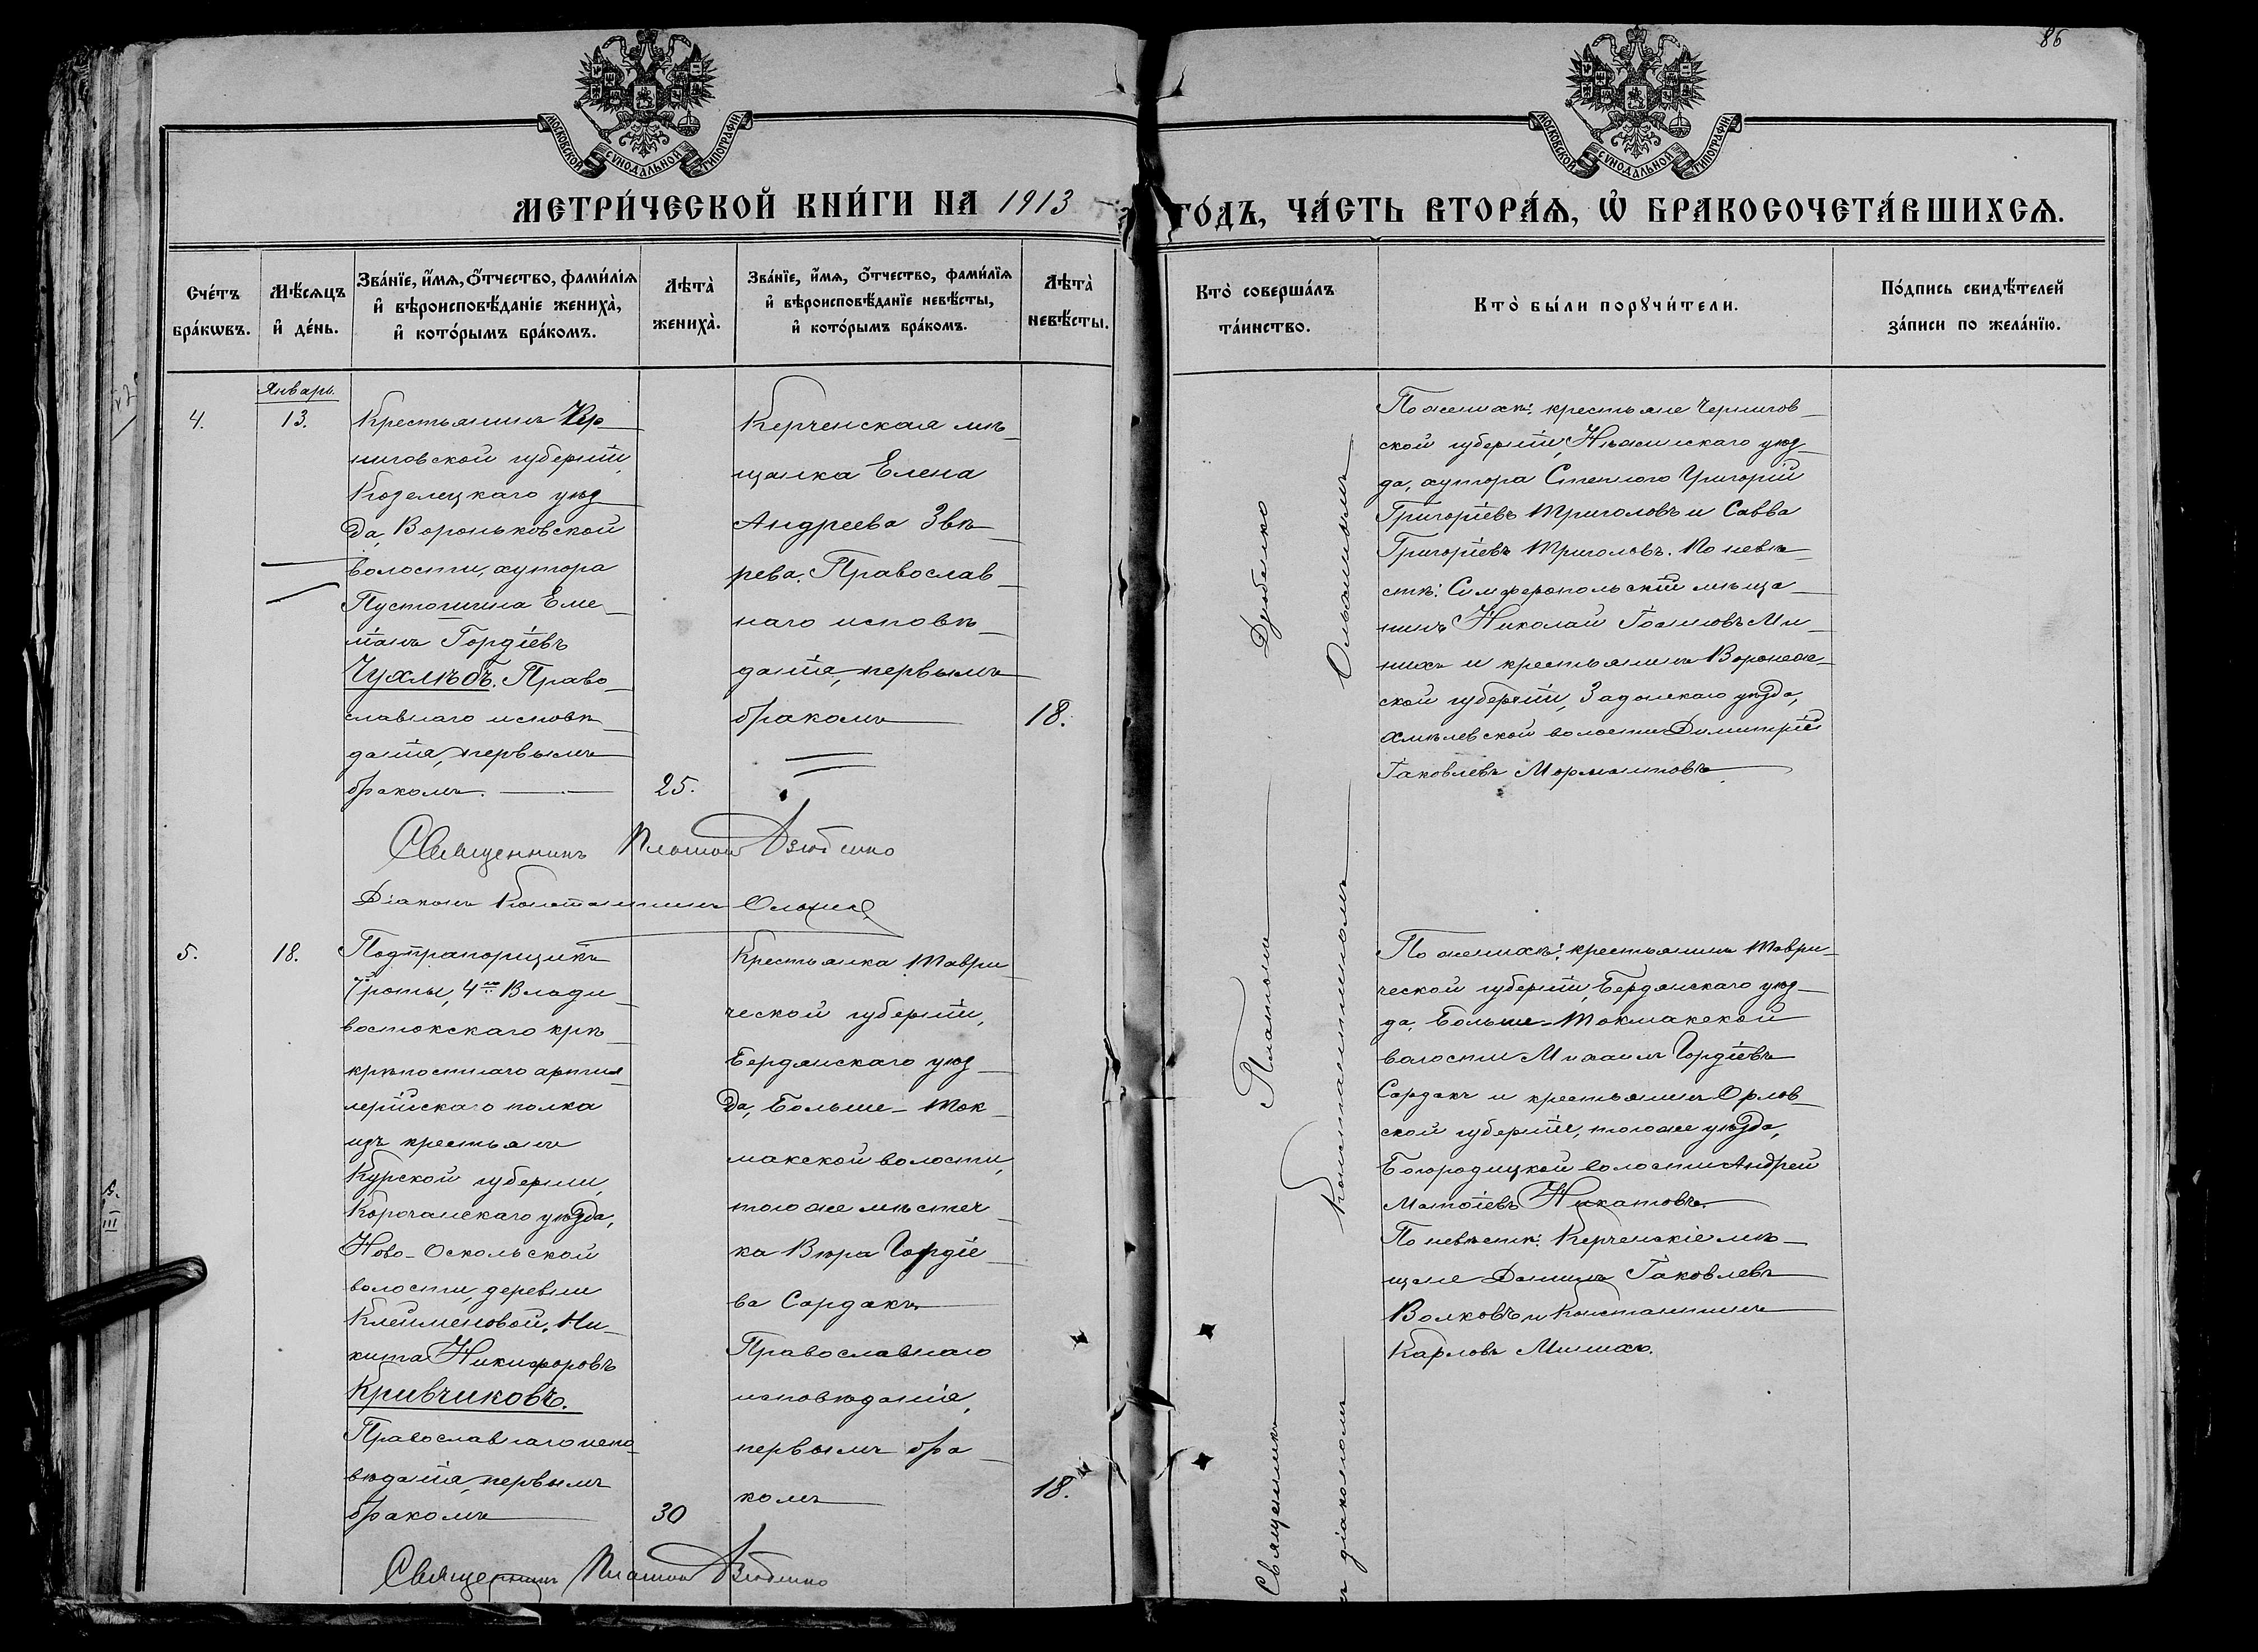 86
МОСКОВСКОЙ СѴНОДАЛЬНОЙ ТИПОГРАФІИ
МОСКОВСКОЙ СѴНОДАЛЬНОЙ ТИПОГРАФІИ
МЕТРИ́ЧЕСКОЙ КНИ́ГИ НА 1913
ГО́ДЪ, ЧА́СТЬ ВТОРА́Ѧ, Ѽ БРАКОСОЧЕТА́ВШИХСѦ.
Сче́тъ
бра́кѡвъ.
Мѣ́сѧцъ
и҆ де́нь.
Зва́нїе, и҆́мѧ, ѻ҆́тчество, фами́лїѧ
и҆ вѣроисповѣ́данїе жениха̀,
и҆ кото́рымъ бра́комъ.
Лѣта̀
жениха̀.
Зва́нїе, и҆́мѧ, ѻ҆́тчество, фами́лїѧ
и҆ вѣроисповѣ́данїе невѣ́сты,
и҆ кото́рымъ бра́комъ.
Лѣта̀
невѣ́сты.
Кто̀ соверша́лъ
та́инство.
Кто̀ бы́ли порꙋчи́тели.
По́дпись свидѣ́телей
за́писи по жела́нїю.
Январь.
4.
13.
Крестьянинъ Чер-
ниговской губерніи,
Козелецкаго уѣз-
да, Вороньковской
волости, хутора
Емe-
ліанъ Гордіевъ
Чухлѣбъ. Право-
славнаго исповѣ-
данія, первымъ
бракомъ.
25.
Керченская мѣ-
щанка Елена
Андреева Звѣ-
рева. Православ-
наго исповѣ-
данія, первымъ
бракомъ
18.
По женихѣ: крестьяне Чернигов-
ской губерніи, Нѣжинскаго уѣз-
да, хутора Степного Григорій
Григоріевъ Триголовъ и Савва
Григоріевъ Триголовъ. По невѣ-
стѣ: Симферопольскій мѣща-
нинъ Николай Ми-
нихъ и крестьянинъ Воронеж-
ской губерніи, Задонскаго уѣзда,
Хмѣлевской волости Димитрій
Іаковлевъ
Священникъ Платонъ Дзюбенко
Діаконъ Константинъ
5.
18.
Подпрапорщикъ
7 роты, 4го Влади-
востокскаго крѣ-
крѣпостнаго артил-
лерійскаго полка
изъ крестьянъ
Курской губерніи,
Корочанскаго уѣзда,
Ново-Оскольской
волости, деревни
Клейменовой, Ни-
кита Никифоровъ
Кривчиковъ.
Православнаго испо-
вѣданія, первымъ
бракомъ
30
Крестьянка Таври-
ческой губерніи,
Бердянскаго уѣз-
да, Больше-Ток-
макской волости,
того же мѣстеч-
ка Вѣра Гордіе-
ва Сардакъ
Православнаго
исповѣданія,
первымъ бра-
комъ
18.
По женихѣ: крестьянинъ Таври-
ческой губерніи, Бердянскаго уѣз-
да, Больше-Токмакской
волости Михаилъ Гордіевъ
Сардакъ и крестьянинъ Орлов-
ской губерніи, того же уѣзда,
Богородицкой волости Андрей
По невѣстѣ: Керченскіе мѣ-
щане Даніилъ Іаковлевъ
Волковъ и Константинъ
Карловъ Минихъ.
Священникъ Платонъ Дзюбенко
Священникъ Платонъ
діакономъ Константиномъ